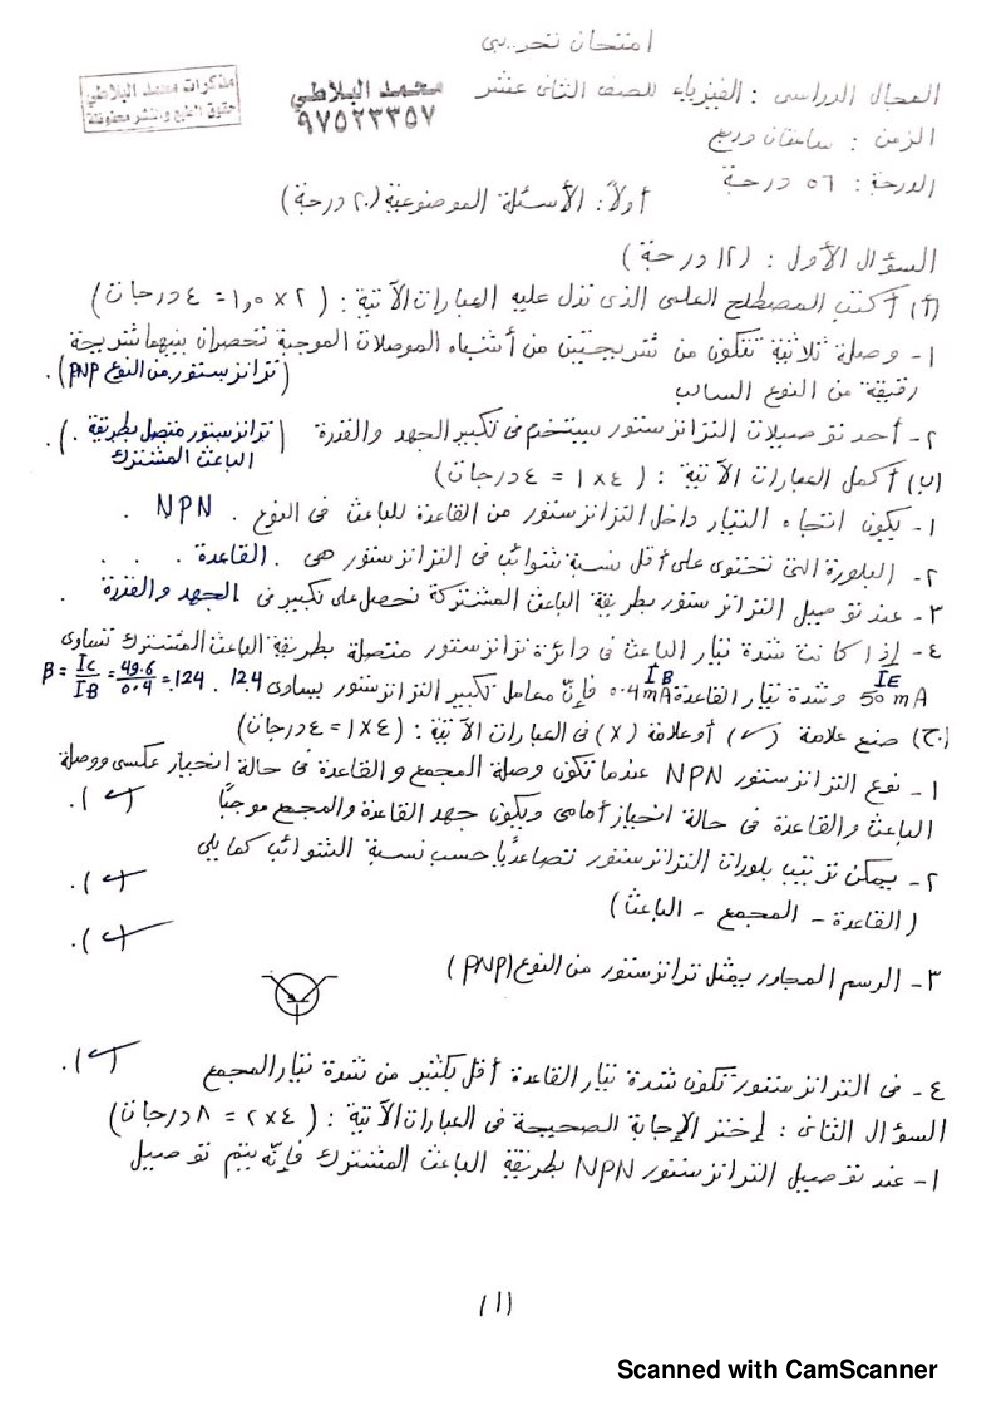 امتحان تجريبى
المجال الدراسى : الفيزياء للصف الثانى عشر
محمد البلاطي
٩٧٥٢٣٣٥٧
مذكرات محمد البلاطي
حقوق الطبع والنشر محفوظة
الزمن : ساعتان وربع
الدرجة : ٥٦ درجة
أولاً : الأسئلة الموضوعية (٢٠ درجة)
السؤال الأول : (١٢ درجة)
(أ) أكتب المصطلح العلمى الذى تدل عليه العبارات الآتية : (٢ × ١,٥ = ٤ درجات)
١- وصلة ثلاثية تتكون من شريحتين من أشباه الموصلات الموجبة تحصران بينهما شريحة
رقيقة من النوع السالب (ترانزستور من النوع PNP).
٢- أحد توصيلات الترانزستور يستخدم فى تكبير الجهد والقدرة (ترانزستور متصل بطريقة الباعث المشترك).
(ب) أكمل العبارات الآتية : (٤ × ١ = ٤ درجات)
١- يكون اتجاه التيار داخل الترانزستور من القاعدة للباعث فى النوع . NPN .
٢- البلورة التى تحتوى على أقل نسبة شوائب فى الترانزستور هى . القاعدة . . .
٣- عند توصيل الترانزستور بطريقة الباعث المشتركة نحصل على تكبير فى الجهد والقدرة .
٤- إذا كانت شدة تيار الباعث فى دائرة ترانزستور متصلة بطريقة الباعث المشترك تساوى
IE IB
50 mA وشدة تيار القاعدة 0.4mA فإنّ معامل تكبير الترانزستور يساوى 124 . B = IC/IB = 49.6/0.4 = 124 .
(ج) ضع علامة (✓) أو علامة (X) فى العبارات الآتية : (٤ × ١ = ٤ درجات)
١- نوع الترانزستور NPN عندما تكون وصلة المجمع والقاعدة فى حالة انحياز عكسى ووصلة
الباعث والقاعدة فى حالة انحياز أمامى ويكون جهد القاعدة والمجمع موجبًا (✓).
٢- يمكن ترتيب بلورات الترانزستور تصاعديًا حسب نسبة الشوائب كما يلى (✓).
(القاعدة - المجمع - الباعث)
(✓).
٣- الرسم المجاور يمثل ترانزستور من النوع (PNP)
٤- فى الترانزستور تكون شدة تيار القاعدة أقل بكثير من شدة تيار المجمع (✓).
السؤال الثانى : إختر الإجابة الصحيحة فى العبارات الآتية : (٤ × ٢ = ٨ درجات)
١- عند توصيل الترانزستور NPN بطريقة الباعث المشترك فإنّه يتم توصيل
(١)
Scanned with CamScanner